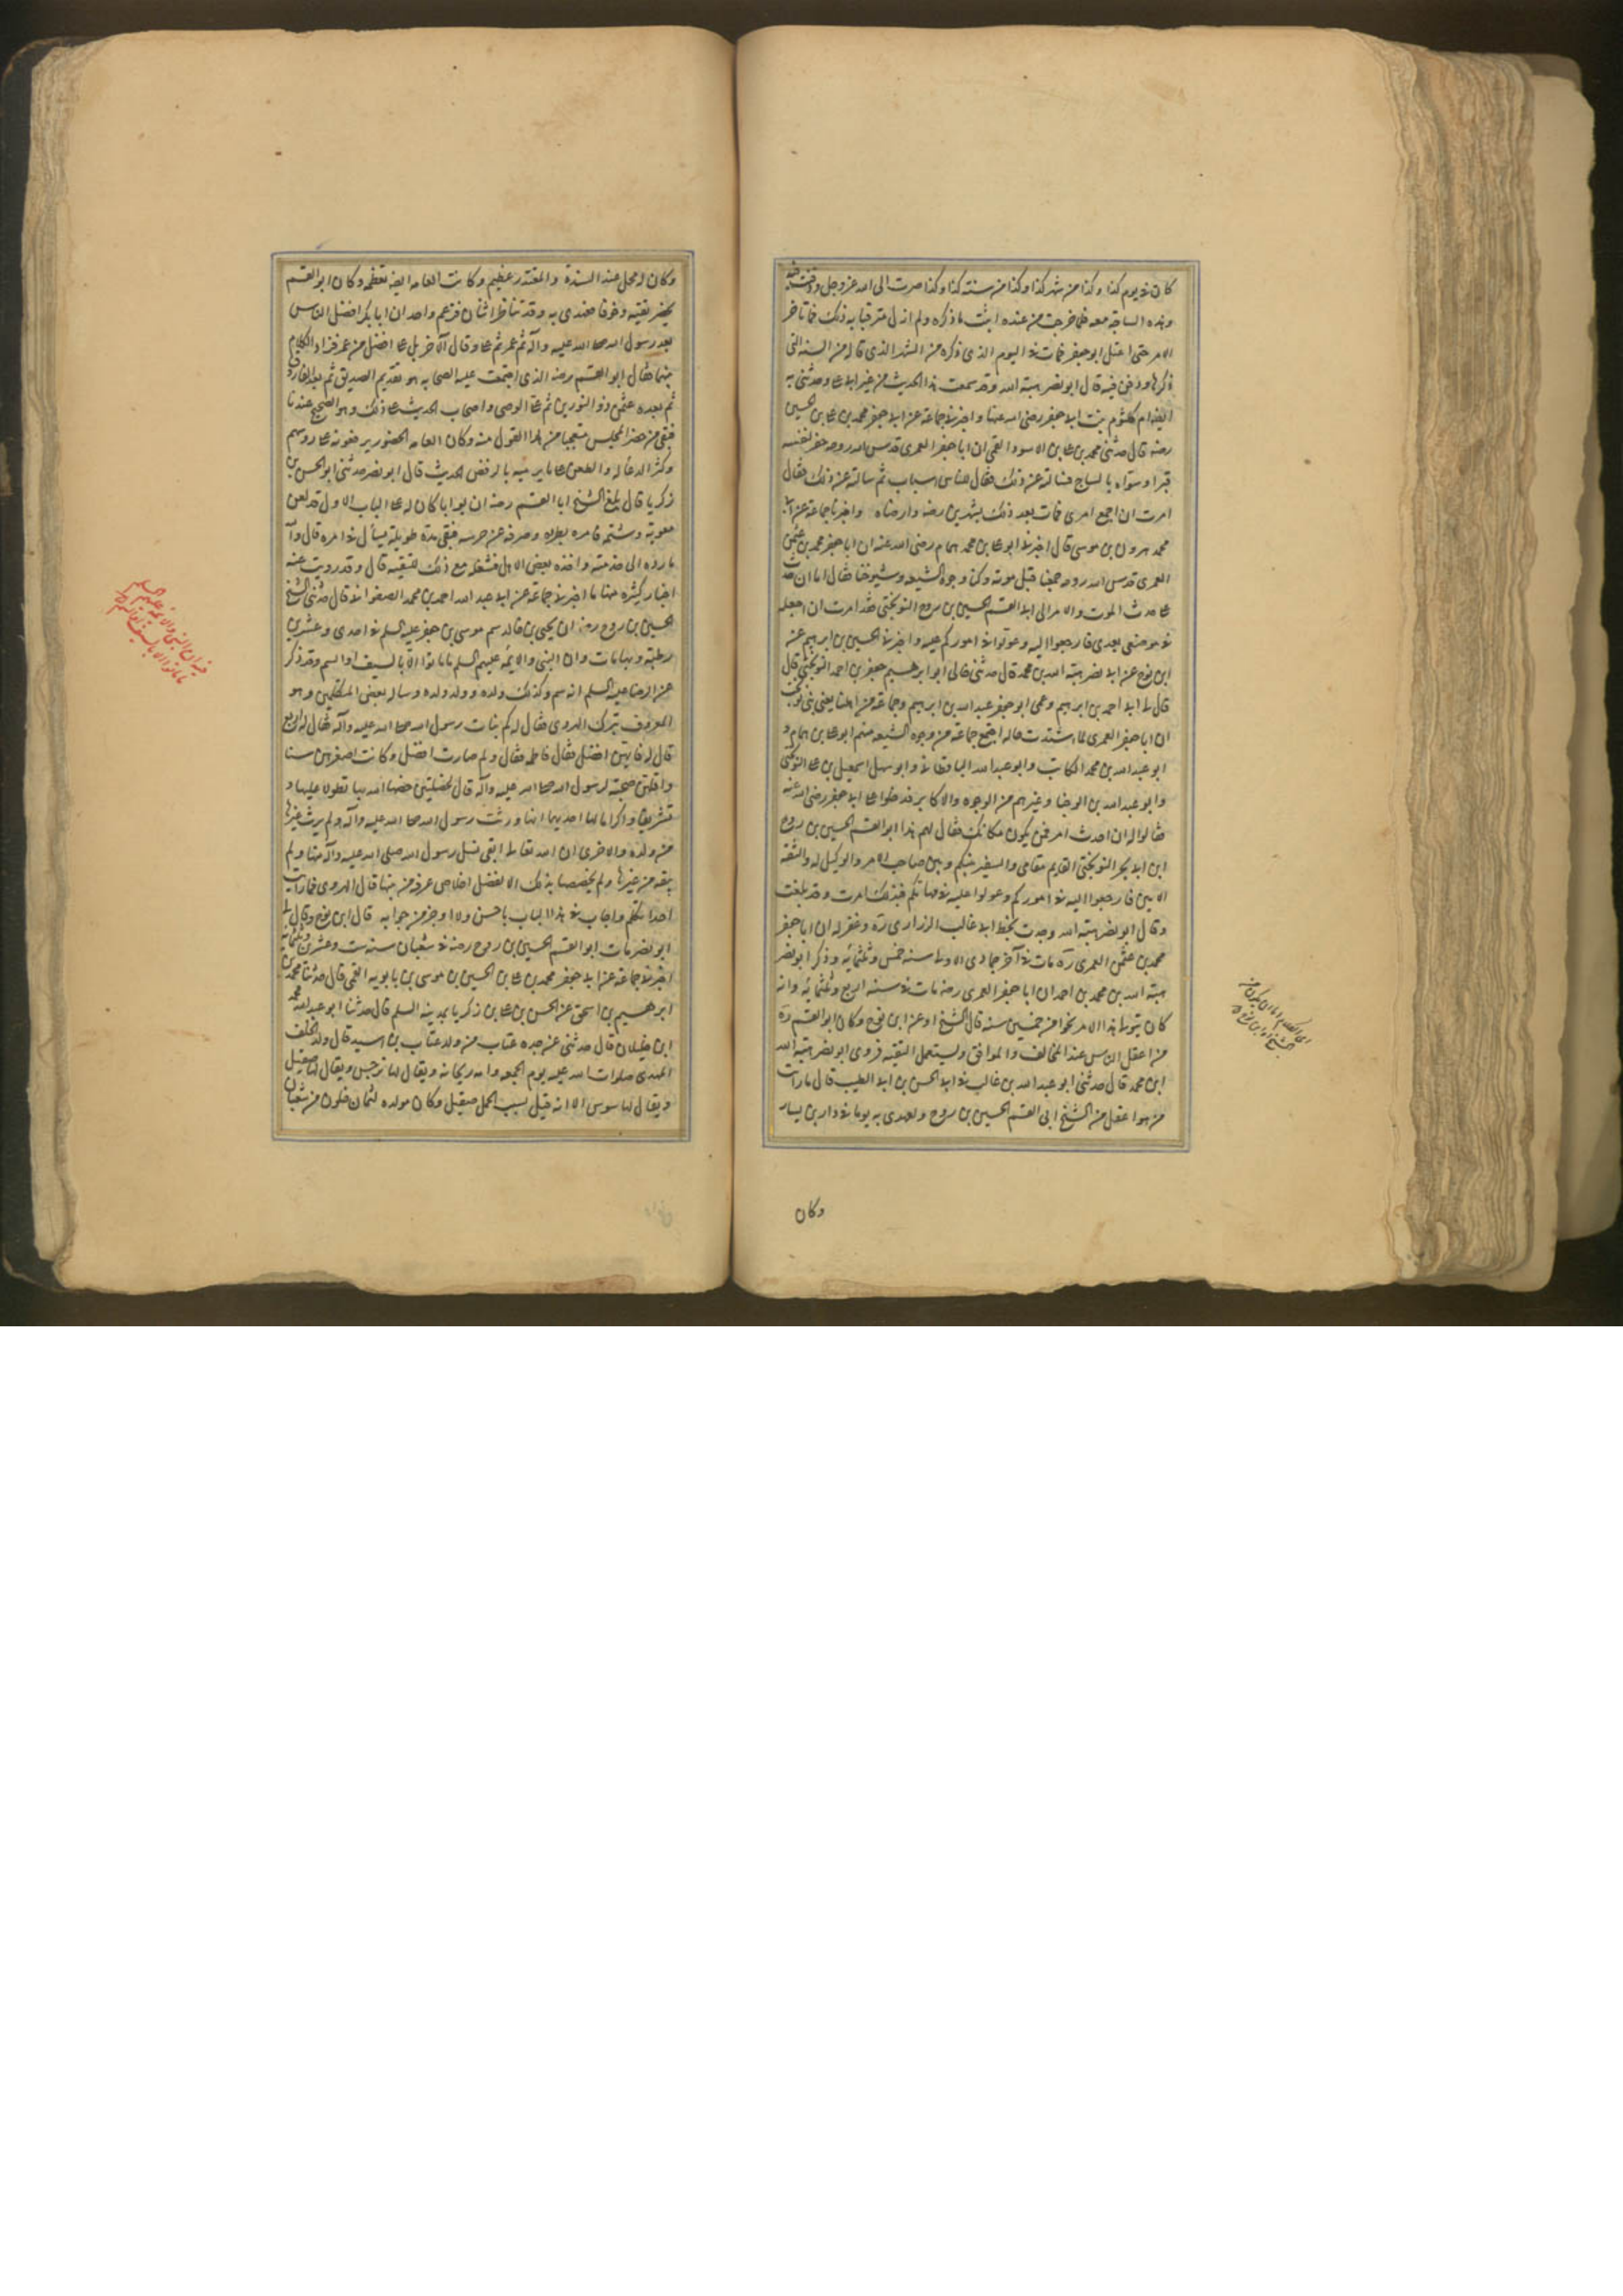 كان في يوم كذا وكذا من شهر كذا وكذا من سنة كذا وكذا صرت الى الله عز وجل ودفنت فيه
وهذه الساجة معه فلما خرجت من عنده اثبت ما ذكره ولم ازل مترقبا به ذلك فما تاخر
الامر حتى اعتل ابو جعفر فمات في اليوم الذي ذكره من الشهر الذي قاله من السنة التي
ذكرها ودفن فيه قال ابو نصر هبة الله وقد سمعت هذا الحديث من غير ابي علي وحدثتني به
ايضا ام كلثوم بنت ابي جعفر رضي الله عنها واخبرني جماعة عن ابي جعفر محمد بن علي بن الحسين
رضه قال حدثني محمد بن علي بن الاسود القمي ان ابا جعفر العمري قدس الله روحه حفر لنفسه
قبرا وسواه بالساج فسالته عن ذلك فقال للناس اسباب ثم سالته عن ذلك فقال
امرت ان اجمع امري فمات بعد ذلك بشهرين رضه وارضاه واخبرنا جماعة عن ابي
محمد هرون بن موسى قال اخبرني ابو علي محمد همام رضي الله عنه ان ابا جعفر محمد بن عثمن
العمري قدس الله روحه جمعنا قبل موته وكنا وجوه الشيعه وشيوخنا فقال لنا ان حدث
علي حدث الموت والامر الى ابي القسم الحسين بن روح النوبختي فقد امرت ان اجعله
في موضعي بعدي فارجعوا اليه وعولوا في اموركم عليه واخبرني الحسين بن ابرهيم عن
ابن نوح عن ابي نصر هبة الله بن محمد قال حدثني خالي ابو ابرهيم جعفر بن احمد النوبختي قال
قال لي ابي احمد بن ابرهيم وعمي ابو جعفر عبد الله بن ابرهيم وجماعة من اهلنا يعني بني نوبخت
ان ابا جعفر العمري لما اشتدت حاله اجتمع جماعة من وجوه الشيعه منهم ابو علي بن همام و
ابو عبد الله بن محمد الكاتب وابو عبد الله الباقطاني وابو سهل اسمعيل بن علي النوبختي
وابو عبد الله بن الوجنا وغيرهم من الوجوه والاكابر فدخلوا على ابي جعفر رضي الله عنه
فقالوا له ان حدث امر فمن يكون مكانك فقال لهم هذا ابو القسم الحسين بن روح
ابن ابي بحر النوبختي القايم مقامي والسفير بينكم وبين صاحب الامر والوكيل له والثقة
الامين فارجعوا اليه في اموركم وعولوا عليه في مهماتكم فبذلك امرت وقد بلغت
وقال ابو نصر هبة الله وجدت بخط ابي غالب الزراري ره وغفر له ان ابا جعفر
محمد بن عثمن العمري ره مات في آخر جمادي الاولى سنة خمس وثلثمائة وذكر ابو نصر
هبة الله بن محمد بن احمد ان ابا جعفر العمري رضه مات في سنه اربع وثلثمائة وانه
كان يتولى هذا الامر نحوا من خمسين سنه قال الشيخ او عن ابن نوح وكان ابو القسم ره
من اعقل الناس عند المخالف والموافق ويستعمل التقية فروى ابو نصر هبة الله
ابن محمد قال حدثني ابو عبد الله بن غالب في ابي الحسن بن ابي الطيب قال ما رايت
من هو اعقل من الشيخ ابي القسم الحسين بن روح ولعهدي به يوما في دار بن يسار
وكان
وكان له محل عند السيدة والمقتدر عظيم وكانت العامه ايضا تعظمه وكان ابو القسم
يحضر تقية وخوفا فعهدي به وقد تناظر اثنان فزعم واحد ان ابا بكر افضل الناس
بعد رسول الله صلى الله عليه وآله ثم عمر ثم علي وقال الآخر بل علي افضل من عمر فزاد الكلام
بينهما فقال ابو القسم رضه الذي اجتمعت عليه الصحابه هو تقديم الصديق ثم بعده الفاروق
ثم بعده عثمن ذو النورين ثم علي الوصي واصحاب الحديث على ذلك وهو الصحيح عندنا
فبقي من حضر المجلس متعجبا من هذا القول منه وكان العامه الحضور يرفعونه على روسهم
وكثر الدعاء له والطعن على ما يرميه بالرفض الحديث قال ابو نصر حدثني ابو الحسن بن
زكريا قال بلغ الشيخ ابا القسم رضه ان بوابا كان له على الباب الاول قد لعن
معوية وشتمه فامر بطرده وصرفه عن خدمته فبقي مدة طويلة يسأل في امره قال والله
ما رده الى خدمته واخذه بعض الاهل فشغله مع ذلك للتقيه قال وقد رويت عنه
اخبار كثيره منها ما اخبرني جماعة عن ابي عبد الله احمد بن محمد الصفواني قال حدثني الشيخ
الحسين بن روح رضه ان يحيى بن خالد سم موسى بن جعفر عليه السلم في احدى وعشرين
رطبة وبها مات وان النبي والايمه عليهم السلم ما ماتوا الا بالسيف او السم وقد ذكر
عن الرضا عليه السلم انه سم وكذلك ولده وولد ولده وساله بعض المتكلمين وهو
المعروف بترك الهروى فقال له كم بنات رسول الله صلى الله عليه وآله فقال له اربع
قال له فايتهن افضل فقال فاطمه فقال ولم صارت افضل وكانت اصغرهن سنا
واقلهن صحبة لرسول الله صلى الله عليه وآله قال لخصلتين خصها الله بها تطولا عليها و
تشريفا واكراما لها احديهما انها ورثت رسول الله صلى الله عليه وآله ولم يرث غيرها
من ولده والاخرى ان الله تعالى ابقى نسل رسول الله صلى الله عليه وآله منها ولم
يبقه من غيرها ولم يخصصها بذلك الا لفضل اخلاص عرفه من نيتها قال الهروى فما رايت
احدا تكلم واجاب في هذا الباب باحسن ولا اوجز من جوابه قال ابن نوح وقال لي
ابو نصر مات ابو القسم الحسين بن روح رضه في شعبان سنة ست وعشرين وثلثمائة
اخبرني جماعة عن ابي جعفر محمد بن علي بن الحسين بن موسى بن بابويه القمي قال حدثنا محمد بن
ابرهيم بن اسحق عن الحسن بن علي بن زكريا بمدينه السلم قال حدثنا ابو عبد الله محمد
ابن خليلان قال حدثني عن جده عتاب من ولد عتاب بن اسيد قال ولد الخلف
المهدى صلوات الله عليه يوم الجمعه وامه ريحانه ويقال لها نرجس ويقال لها صقيل
ويقال لها سوسن الا انه قيل بسبب الحمل صقيل وكان مولده لثمان خلون من شعبان
فيه ان النبي والايمة عليهم السلم
ما ماتوا الا بالسيف او السم